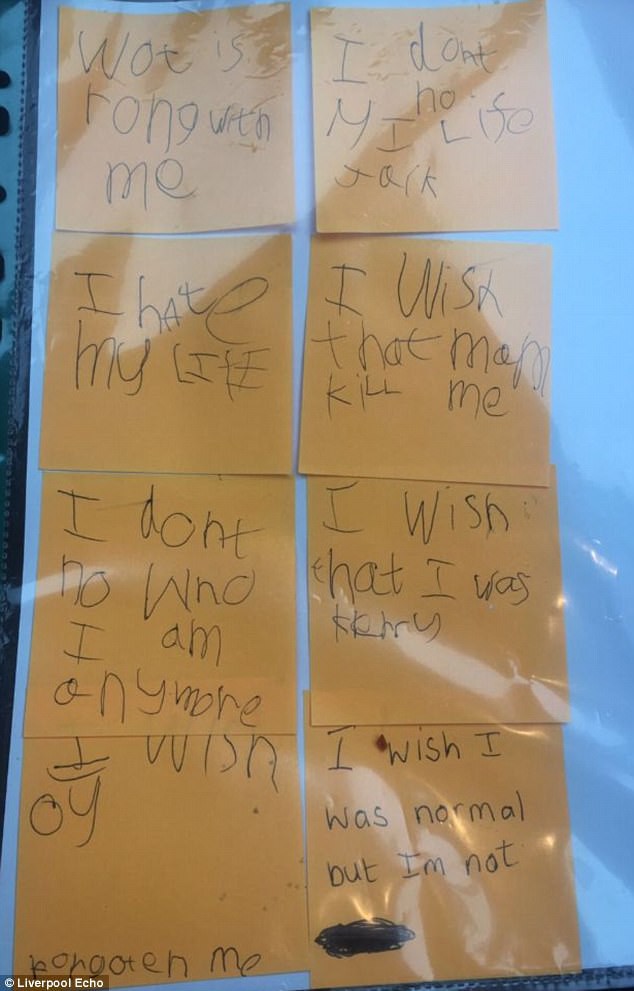 Wot is
rong with
me
I dont
no
MI LIfe
I hate
my LIfE
I Wish
that mam
KiLL me
I dont
no Who
I am
anymore
I Wish
that I was
I wish
oy
I wish I
was normal
but Im not
me
© Liverpool Echo